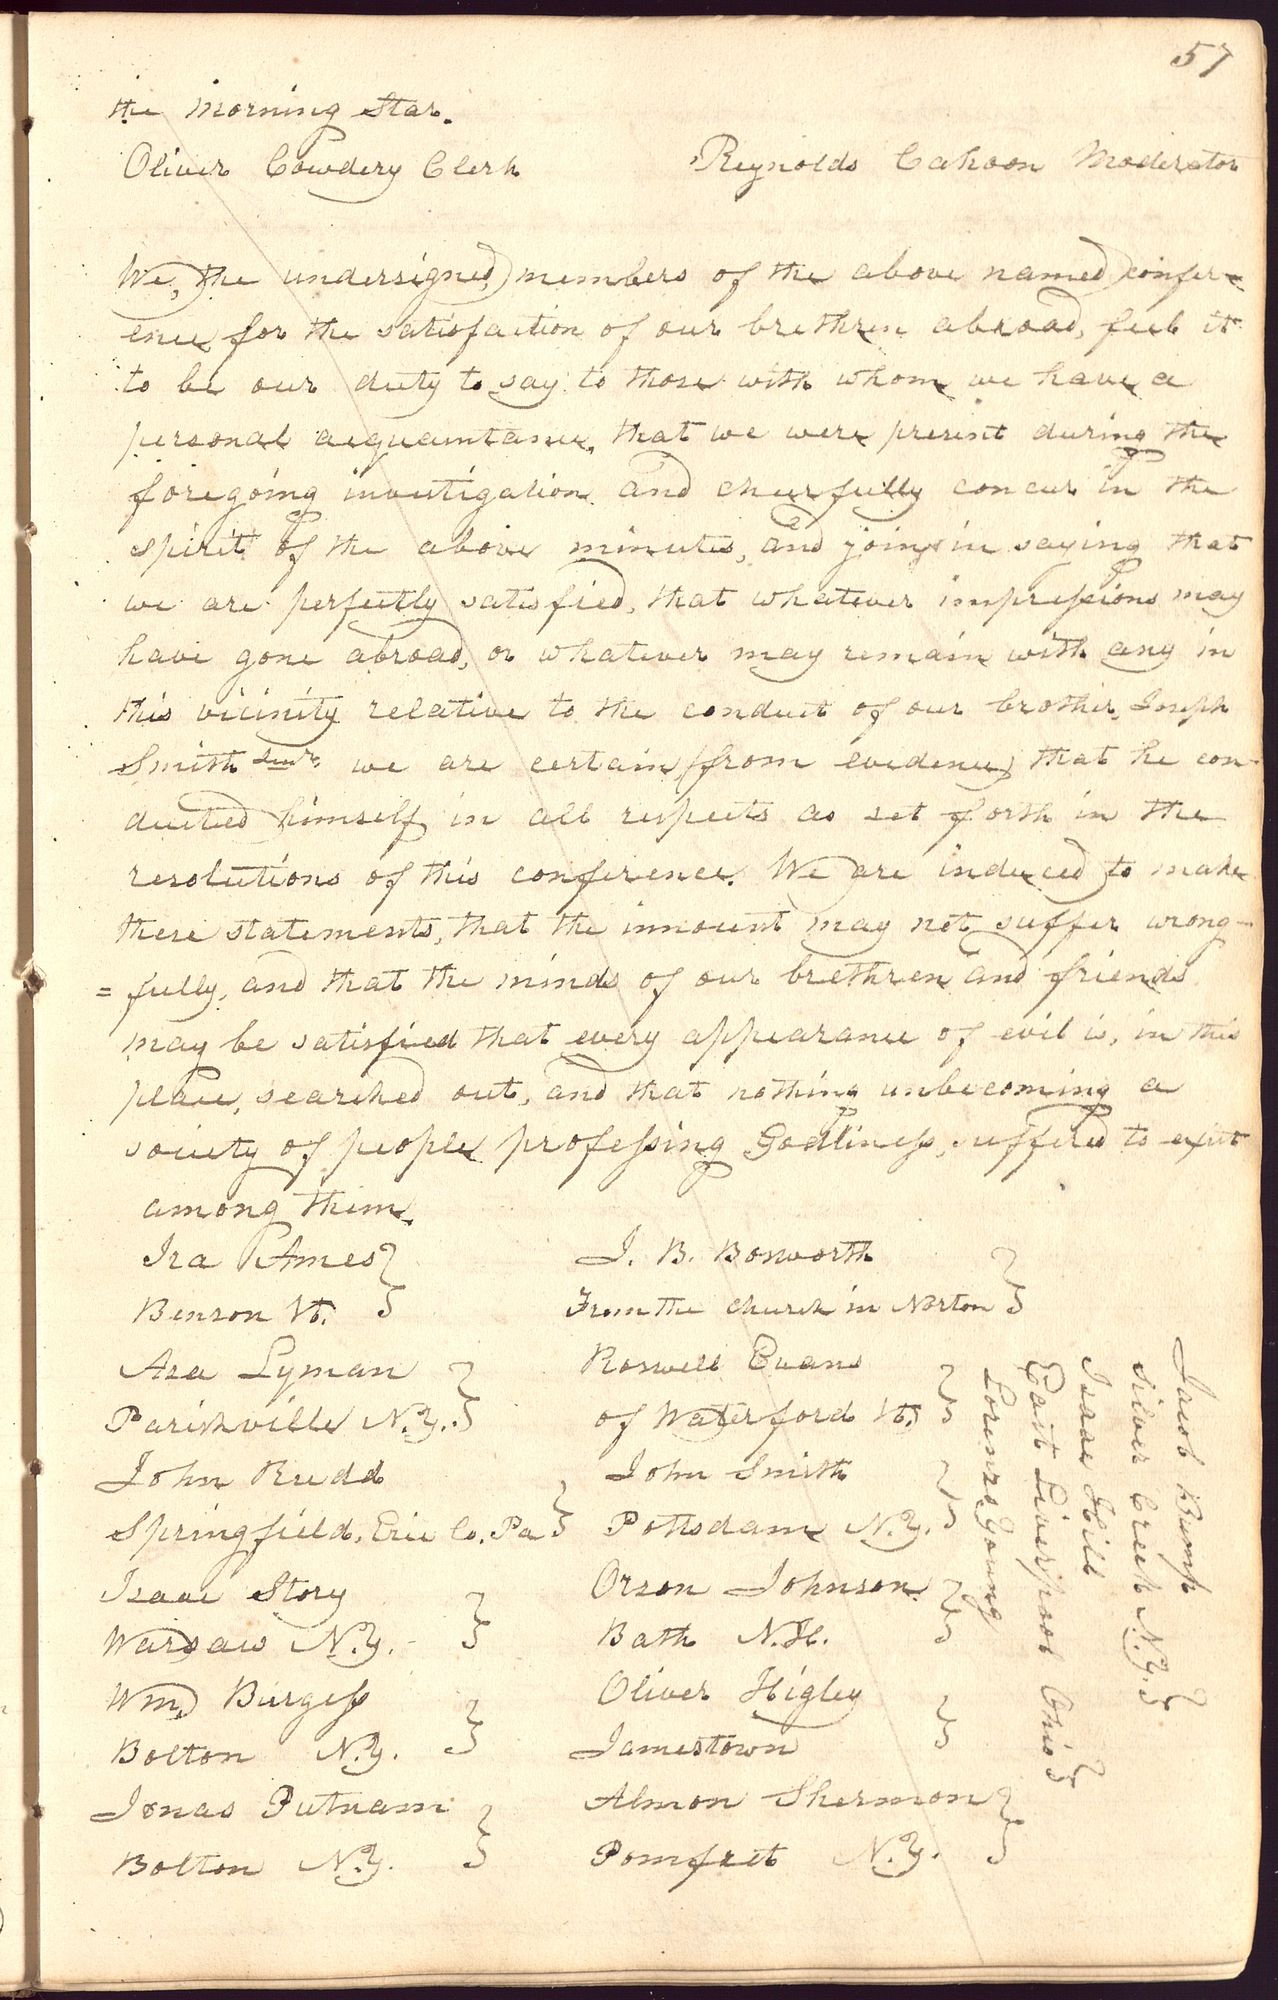 57
the Morning Star.
Oliver Cowdery Clerk Reynolds Cahoon Moderator
We, the undersigned, members of the above named confer-
ence, for the satisfaction of our brethren abroad, feel it
to be our duty to say to those with whom we have a
personal acquaintance, that we were present during the
foregoing investigation and cheerfully concur in the
spirit of the above minutes, and join in saying that
we are perfectly satisfied, that whatever impressions may
have gone abroad, or whatever may remain with any in
this vicinity relative to the conduct of our brother, Joseph
Smith Senr. we are certain, from evidence, that he con-
ducted himself in all respects as set forth in the
resolutions of this conference. We are induced to make
these statements, that the innocent may not suffer wrong-
=fully, and that the minds of our brethren and friends
may be satisfied that every appearance of evil is, in this
place, searched out, and that nothing unbecoming a
society of people professing Godliness, suffered to exist
among them.
Ira Ames } J. B. Bosworth
Benson Vt. } From the church in Norton }
Asa Lyman Roswell Evans
Parishville N.Y. } of Waterford Vt. }
John Rudd John Smith
Springfield, Erie Co. Pa } Potsdam N.Y. }
Isaac Story Orson Johnson
Warsaw N.Y. } Bath N.H. }
Wm. Burgess Oliver Higley
Bolton N.Y. } Jamestown }
Jonas Putnam Almon Shermon
Bolton N.Y. } Pomfret N.Y. }
Jacob Bump
Silver Creek N.Y. }
Isaac Hill
East Liverpool Ohio }
Lorenzo Young